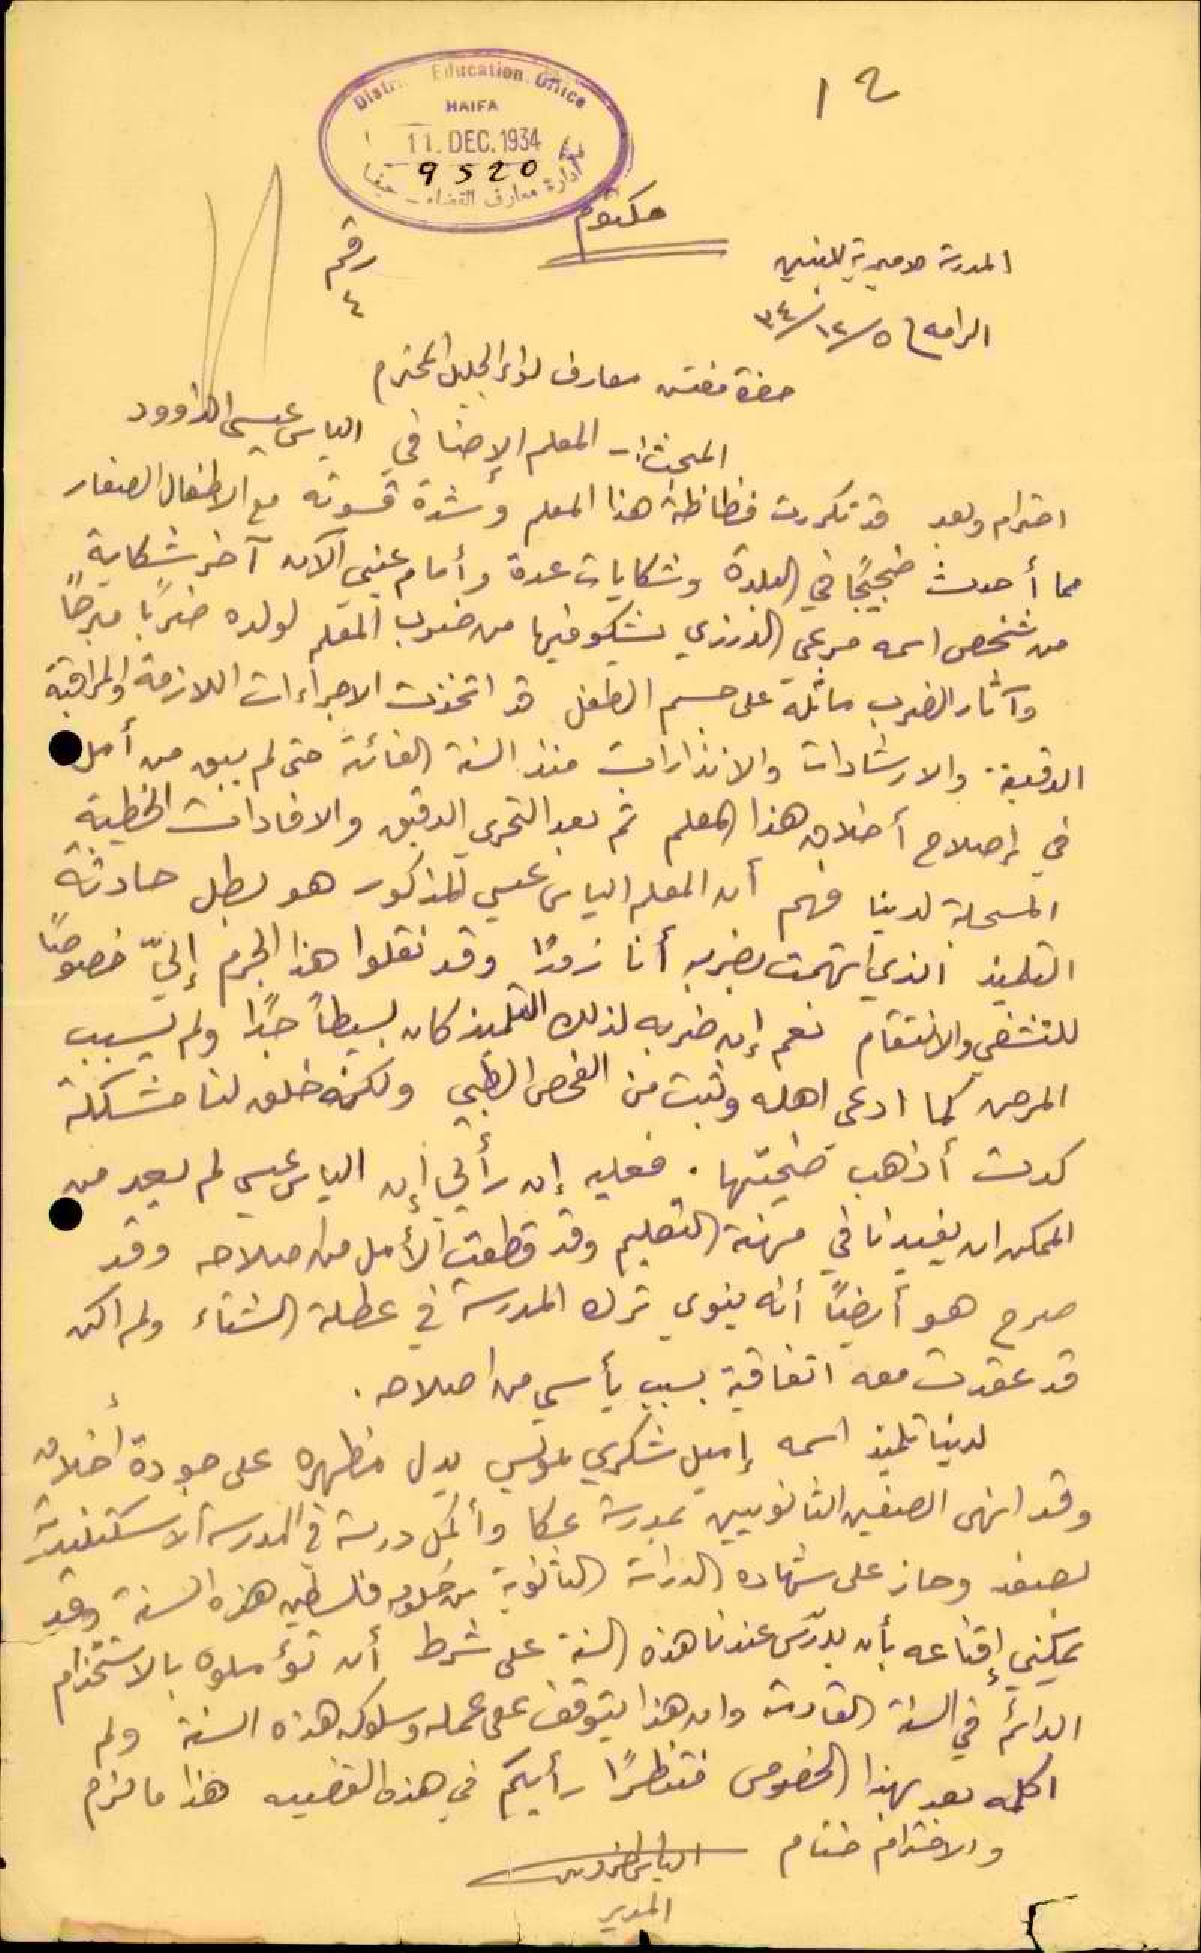 ١٢
District Education Office
HAIFA
11. DEC. 1934
9520
ادارة معارف القضاء - حيفا
مكتوم
المدرسة الاميرية للبنين
رقم
٤
الرامه في ٥/١٢/٣٤
حضرة مفتش معارف لواء الجليل المحترم
المبحث :- المعلم الإضافي الياس عيسى الداوود
احترام وبعد قد تكررت فظاظة هذا المعلم وشدة قسوته مع الاطفال الصغار
مما أحدث ضجيجًا في البلدة وشكايات عدة وأمام عيني الآن آخر شكاية
من شخص اسمه مرعي الدرزي يشكو فيها من ضرب المعلم لولده ضربًا مبرحًا
وآثار الضرب ماثلة على جسم الطفل قد اتخذت الاجراءات اللازمة والمراقبة
الدقيقة والارشادات والانذارات منذ السنة الفائتة حتى لم يبق من أمل
في إصلاح أخلاق هذا المعلم ثم بعد التحري الدقيق والافادات الخطية
المسجلة لدينا فهم أن المعلم الياس عيسى المذكور هو بطل حادثة
التلميذ الذي اتهمت بضربه أنا زورًا وقد نقلوا هذا الجرم إليّ خصوصًا
للتشفي والانتقام نعم إن ضربه لذلك التلميذ كان بسيطاً جدًا ولم يسبب
المرض كما ادعى اهله وثبت من الفحص الطبي ولكنه خلق لنا مشكلة
كدت أذهب ضحيتها . فعليه إن رأيي إن الياس عيسى لم يعد من
الممكن ان يفيدنا في مهنة التعليم وقد قطعت الأمل من صلاحه وقد
صرح هو أيضًا أنه ينوي ترك المدرسة في عطلة الشتاء ولم اكن
قد عقدت معه اتفاقية بسبب يأسي من اصلاحه .
لدينا تلميذ اسمه إميل شكري يدل مظهره على جودة أخلاقه
وقد انهى الصفين الثانويين بمدرسة عكا وأكمل درسه في المدرسة الاسكتلندية
بصفد وحاز على شهادة الدراسة الثانوية من حكومة فلسطين هذه السنة وقد
يمكنني إقناعه بأن يدرّس عندنا هذه السنة على شرط أن تؤملوه بالاستخدام
الدائم في السنة القادمة وان هذا يتوقف على عمله وسلوكه هذه السنة ولم
اكلمه بعد بهذا الخصوص منتظرًا رأيكم في هذه القضيه هذا ما لزم
والاحترام ختام
المدير